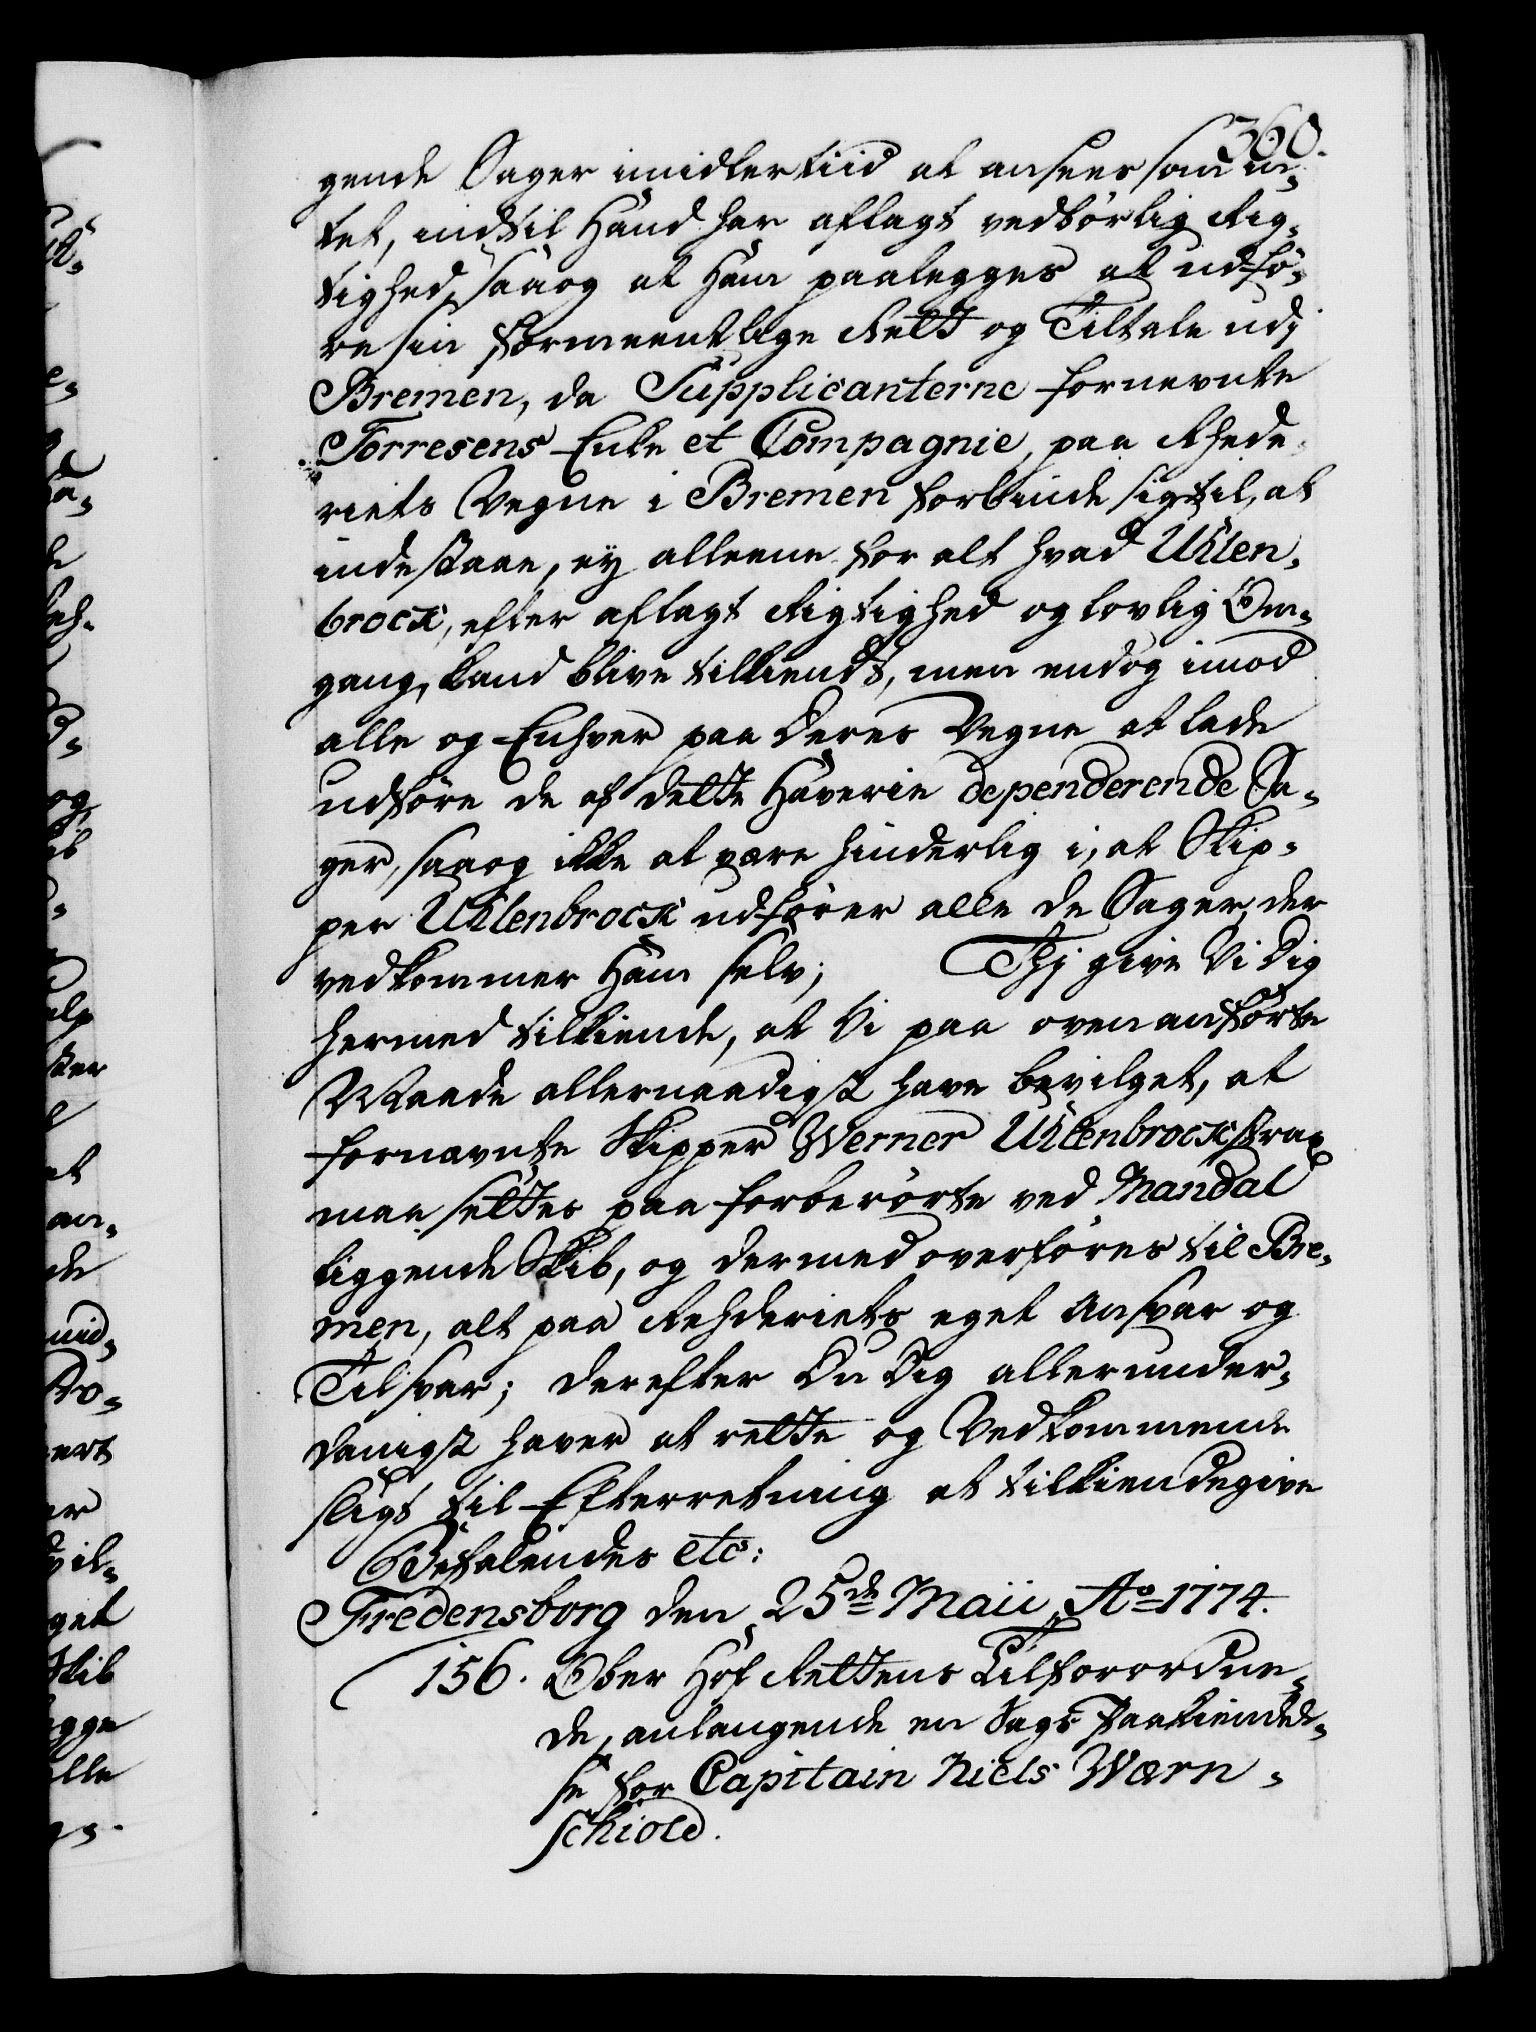 360.
gende Sager imidlertiid at ansees som in¬
tet, indtil Hand har aflagt vedbørlig Rig¬
tighed, saaog at Ham paalegges at udfø¬
re sin formeentlige Rett og Tiltale udj
Bremen, da Supplicanterne fornevnte
Torresens Enke et Compagnie, paa Rhede¬
riets Vegne i Bremen forbinde sig til, at
indestaae, ey alleene for alt hvad Uhlen¬
brock, efter aflagt Rigtighed og lovlig Om¬
gang, kand blive tilkiendt, men endog imod
alle og Enhver paa Deres Vegne at lade
udføre de af dette Haverie dependerende Sa¬
ger, saaog ikke at være hinderlig i, at Skip¬
per Uhlenbrock udfører alle de Sager, der
vedkommer Ham selv; Thj give Vi Dig
hermed tilkiende, at Vi paa ovenanførte
Maade allernaadigst have bevilget, at
fornævnte Skipper Werner Uhlenbrock strax
maa settes paa forberørte ved Mandal
liggende Skib, og dermed overføres til Bre¬
men, alt paa Rehderiets eget Ansvar og
Tilsvar; derefter Du Dig allerunder¬
danigst haver at rette og Vedkommende
sligt til Efterretning at tilkiendegive
Befalendes etc:
Fredensborg den 25de Maii Ao 1774.
156. Ober Hof Rettens Tilforordne¬
de, anlangende en Sags Paakiendel¬
se for Capitain Niels Wærn¬
schiold.